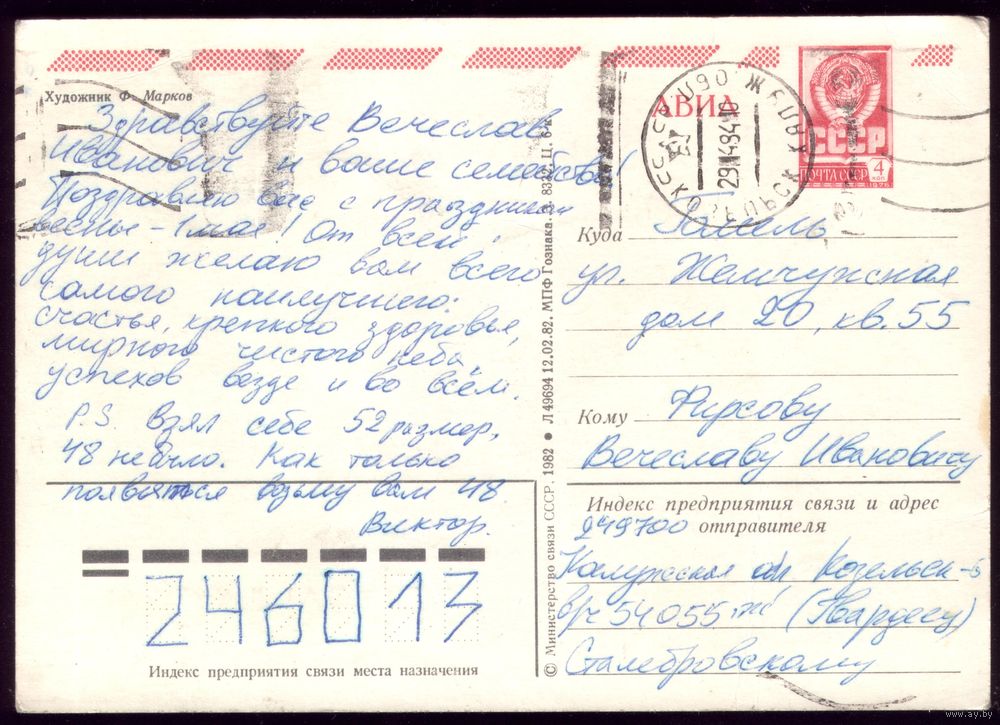 Художник Ф. Марков
Здравствуйте Вечеслав
Иванович и ваше семейство!
Поздравляю вас с праздником
весны - 1 мая! От всей
души желаю вам всего
самого наилучшего:
счастья, крепкого здоровья,
мирного чистого неба
успехов везде и во всём.
P.S. Взял себе 52 размер,
48 не было. Как только
появяться возьму вам 48.
Виктор.
246013
Индекс предприятия связи места назначения
© Министерство связи СССР, 1982 ● Л 49694 12.02.82. МПФ Гознака. З. 8332 Ц. 6 к.
АВИА
КОЗЕЛЬСК
СССР
ПОЧТА СССР
4 коп
1976
Куда Гомель
ул. Жемчужная
дом 20, кв. 55
Кому Фирсову
Вечеславу Ивановичу
Индекс предприятия связи и адрес
249700 отправителя
Калужская обл Козельск-5
в/ч 54055 (Гвардесу)
Сталебровскому
www.ay.by